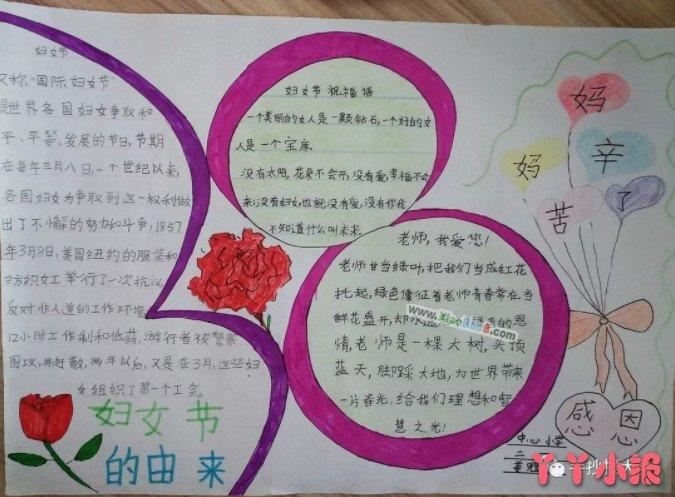 妇女节
又称"国际妇女节"
是世界各国妇女争取和
平、平等、发展的节日,节期
在每年三月八日,一个世纪以来,
各国妇女为争取到这一权利做
出了不懈的努力和斗争,1857
年3月8日,美国纽约的服装和
纺织女工举行了一次抗议,
反对非人道的工作环境
12小时工作制和低薪。游行者被警察
围攻,并赶散,两年以后,又是在3月,这些妇
女组织了第一个工会。
妇女节
的由来
妇女节祝福语
一个美丽的女人是一颗钻石,一个好的女
人是一个宝库。
没有太阳,花朵不会开,没有爱,幸福不会
来,没有妇女,也就没有爱,没有你我
不知道什么叫未来。
老师,我爱您!
老师甘当绿叶,把我们当成红花
托起,绿色像征着老师青春常在,当
鲜花盛开,却永远 绿色的恩
情,老师是一棵大树,头顶
蓝天,脚踩大地,为世界带来
一片春光,给我们理想和智
慧之光!
妈
妈
辛
苦
了
感恩
中心小学
二
丫丫小报